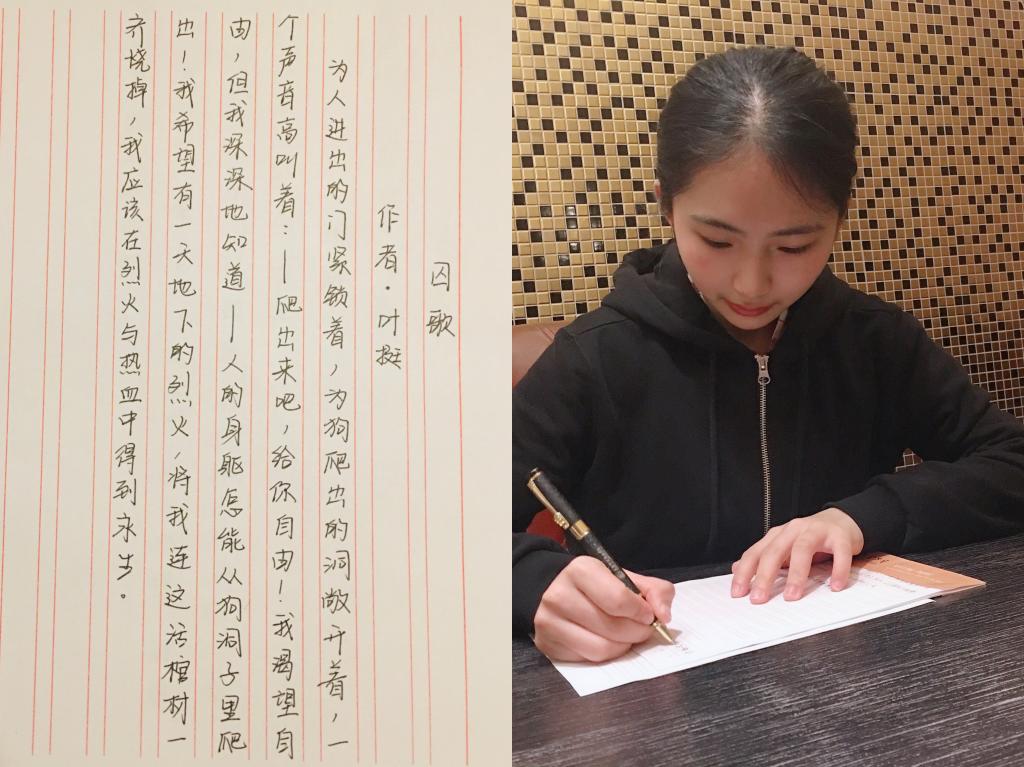 囚歌
作者·叶挺
为人进出的门紧锁着，为狗爬出的洞敞开着，一
个声音高叫着：——爬出来吧，给你自由！我渴望自
由，但我深深地知道——人的身躯怎能从狗洞子里爬
出！我希望有一天地下的烈火，将我连这活棺材一
齐烧掉，我应该在烈火与热血中得到永生。